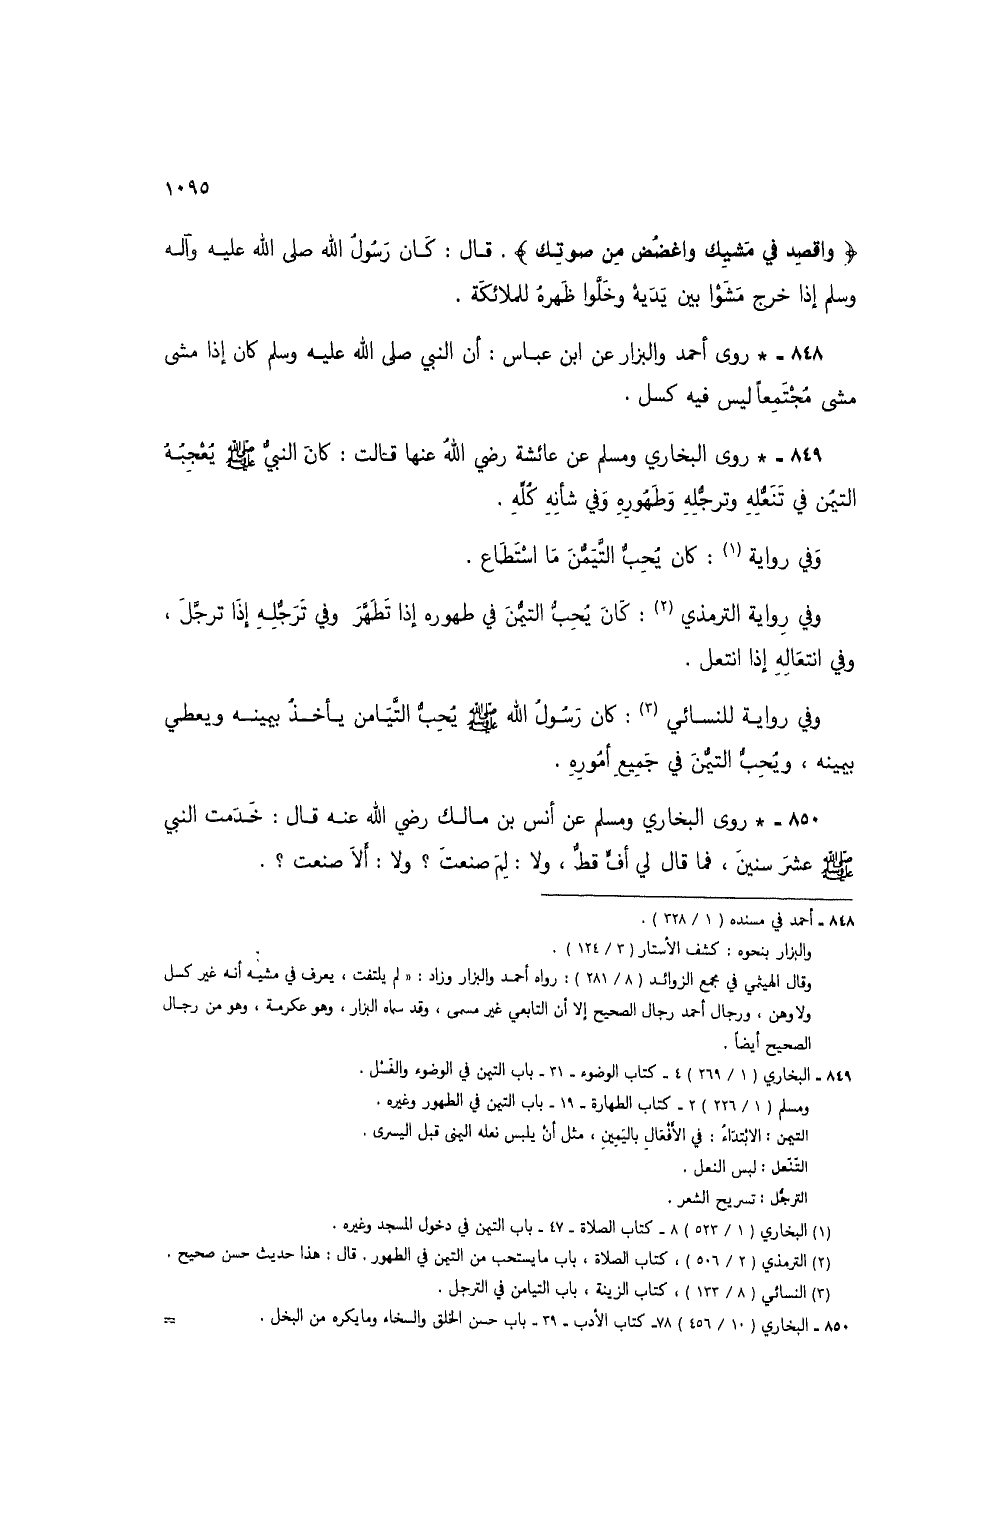 ١٠٩٥
﴿ واقصِد في مَشيِك واغضُض مِن صوتِك ﴾ . قـال : كَـان رَسُولُ الله صلى الله عليـه وآلـه
وسلم إذا خرج مَشَوْا بين يَدَيهْ وخَلَّوا ظَهرهُ للملائكَة .
٨٤٨ ـ * روى أحمد والبزار عن ابن عبـاس : أن النبي صلى الله عليـه وسلم كان إذا مشى
مشى مُجْتَمِعاً ليس فيه كسل .
٨٤٩ ـ * روى البخاري ومسلم عن عائشة رضي اللهُ عنها قـالت : كانَ النبيُّ ﷺ يُعْجِبُـهُ
التيمُن في تَنَعُّلِهِ وترجُّلِهِ وَطَهُورِهِ وَفي شأنِهِ كُلِّهِ .
وَفي رواية (١) : كان يُحِبُّ التَّيَمُّنَ مَا اسْتَطَاع .
وفي رِواية الترمذي (٢) : كَانَ يُحِبُّ التيمُّنَ في طهوره إذا تَطَهَّرَ وفي تَرَجُّلِـهِ إذَا ترجَّلَ ،
وفي انتعَالِهِ إذا انتعل .
وفي روايـة للنسـائي (٣) : كان رَسُولُ الله ﷺ يُحِبُّ التَّيَـامن يـأخـذُ بيمينـه ويعطي
بيمينه ، ويُحِبُّ التيمُّنَ في جَمِيعِ أمُورِهِ .
٨٥٠ ـ * روى البخاري ومسلم عن أنس بن مـالـك رضي الله عنـه قـال : خَـدَمت النبي
ﷺ عشرَ سنينَ ، فما قال لي أفٍّ قطُّ ، ولا : لِمَ صنعتَ ؟ ولا : ألاَ صنعت ؟ .
٨٤٨ ـ أحمد في مسنده ( ١ / ٣٢٨ ) .
والبزار بنحوه : كشف الأستار ( ٣ / ١٢٤ ) .
وقال الهيثمي في مجمع الزوائـد ( ٨ / ٢٨١ ) : رواه أحمـد والبزار وزاد : « لم يلتفت ، يعرف في مشيـه أنـه غير كسل
ولا وهن ، ورجال أحمد رجال الصحيح إلا أن التابعي غير مسمى ، وقد سماه البزار ، وهو عكرمـة ، وهو من رجـال
الصحيح أيضاً .
٨٤٩ ـ البخاري ( ١ / ٢٦٩ ) ٤ ـ كتاب الوضوء ـ ٣١ ـ باب التيمن في الوضوء والغَسْل .
ومسلم ( ١ / ٢٢٦ ) ٢ ـ كتاب الطهارة ـ ١٩ ـ باب التيمن في الطهور وغيره .
التيمن : الابْتدَاءُ : في الأَفْعَالِ باليَمِينِ ، مثل أنْ يلبس نعله اليمنى قبل اليسرى .
التّنَعل : لبس النعل .
الترجُّل : تسريح الشعر .
(١) البخاري ( ١ / ٥٢٣ ) ٨ ـ كتاب الصلاة ـ ٤٧ ـ باب التيمن في دخول المسجد وغيره .
(٢) الترمذي ( ٢ / ٥٠٦ ) ، كتاب الصلاة ، باب ما يستحب من التيمن في الطهور . قال : هذا حديث حسن صحيح .
(٣) النسائي ( ٨ / ١٣٣ ) ، كتاب الزينة ، باب التيامن في الترجل .
٨٥٠ ـ البخاري ( ١٠ / ٤٥٦ ) ٧٨ـ كتاب الأدب ـ ٣٩ ـ باب حسن الخلق والسخاء وما يكره من البخل . =